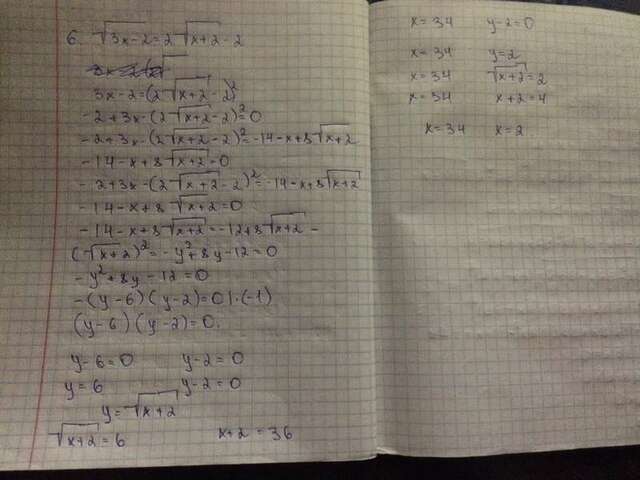 6. √3x-2=2√x+2-2
3x-2=(2√x+2-2)²
-2+3x-(2√x+2-2)²=0
-2+3x-(2√x+2-2)²=-14-x+8√x+2
-14-x+8√x+2=0
-2+3x-(2√x+2-2)²=-14-x+8√x+2
-14-x+8√x+2=0
-14-x+8√x+2=-12+8√x+2-
(√x+2)²=-y²+8y-12=0
-y²+8y-12=0
-(y-6)(y-2)=0|·(-1)
(y-6)(y-2)=0.
y-6=0 y-2=0
y=6 y-2=0
y=√x+2
√x+2=6 x+2=36
x=34 y-2=0
x=34 y=2
x=34 √x+2=2
x=34 x+2=4
x=34 x=2